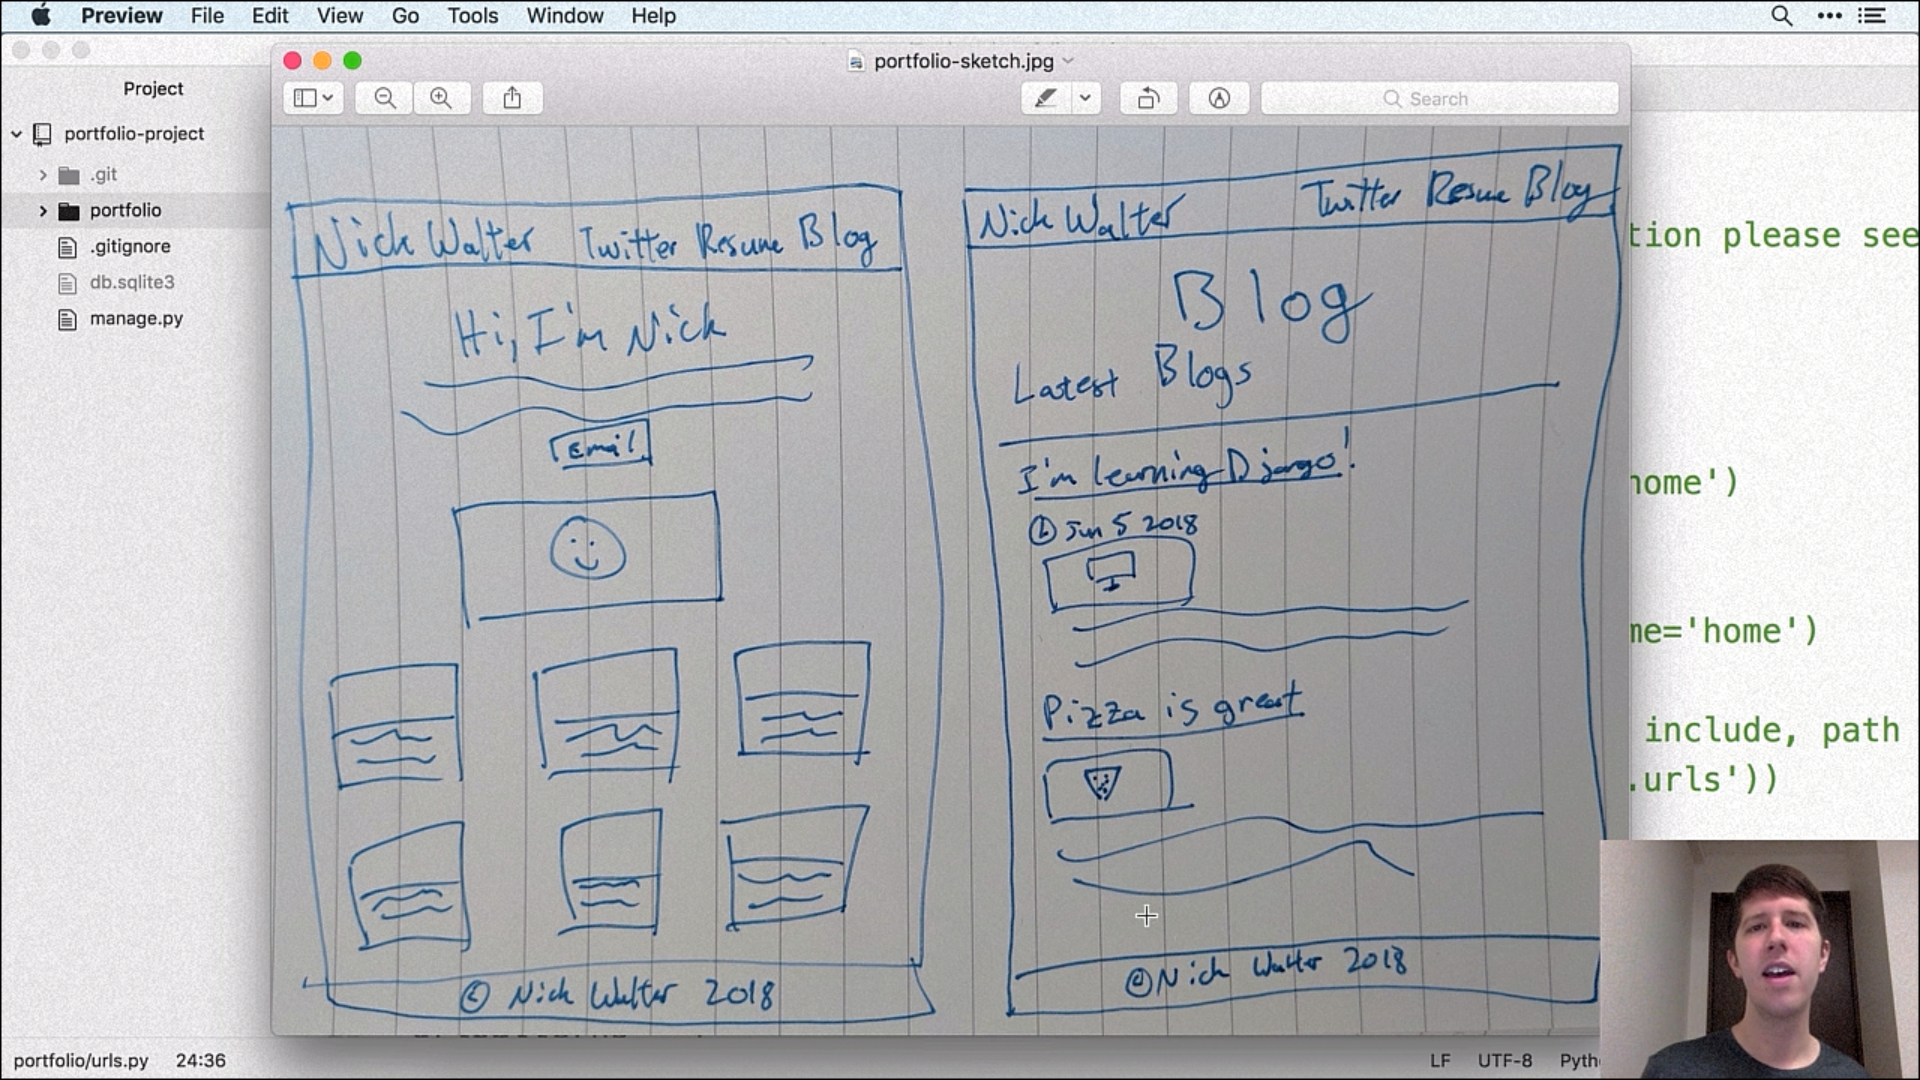 Preview File Edit View Go Tools Window Help
portfolio-sketch.jpg
Search
Project
portfolio-project
.git
portfolio
.gitignore
db.sqlite3
manage.py
Nick Walter Twitter Resume Blog
Hi, I'm Nick
Email
© Nick Walter 2018
Nick Walter Twitter Resume Blog
Blog
Latest Blogs
I'm learning Django!
Jun 5 2018
Pizza is great
© Nick Walter 2018
tion please see
home')
me='home')
include, path
.urls'))
portfolio/urls.py 24:36
LF UTF-8